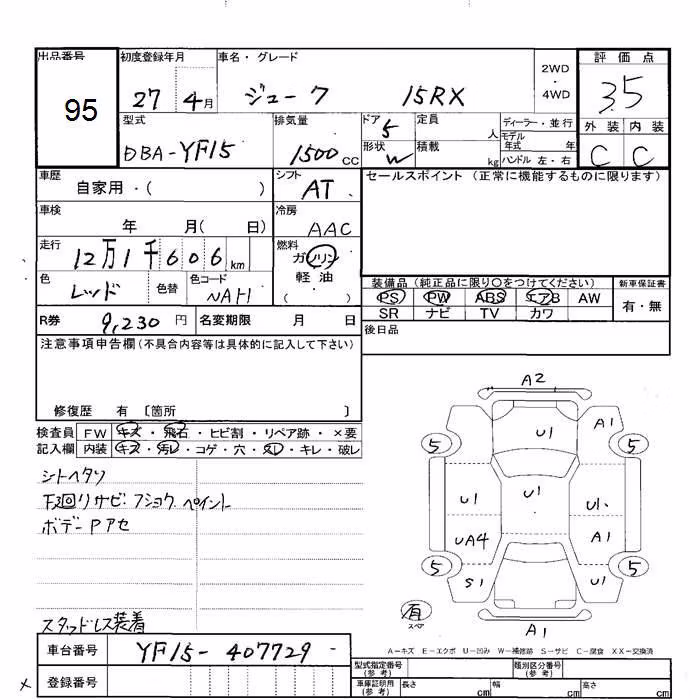 出品番号 初度登録年月 車名・グレード 2WD・4WD 評価点
95 27 4月 ジューク 15RX 3.5
型式 排気量 ドア 5 定員 人 ディーラー・並行 外装 内装
DBA-YF15 1500cc 形状 W 積載 kg モデル年式 年 ハンドル 左・右 C C
車歴 自家用・( ) シフト AT セールスポイント (正常に機能するものに限ります)
車検 年 月( 日) 冷房 AAC
走行 12万1千606km 燃料 ガソリン 軽油 ( )
色 レッド 色替 色コード NAH 装備品 (純正品に限り○をつけてください) 新車保証書
PS PW ABS エアB AW 有・無
SR ナビ TV カワ
R券 9,230円 名変期限 月 日 後日品
注意事項申告欄(不具合内容等は具体的に記入して下さい)
修復歴 有 〔箇所 〕
検査員 FW キズ・飛石・ヒビ割・リペア跡・×要
記入欄 内装 キズ・汚レ・コゲ・穴・スレ・キレ・破レ
シトヘタリ
下廻リサビ・フショク ペイント
ボデーPアセ
スタッドレス装着
A2
U1 A1
5 5
U1 U1 U1
UA4 A1
5 5
S1 U1
有
スペア
A1
A-キズ E-エクボ U-凹み W-補修跡 S-サビ C-腐食 XX-交換済
車台番号 YF15-407729 型式指定番号(参考) 類別区分番号(参考)
× 登録番号 車庫証明用(参考) 長さ cm 幅 cm 高さ cm